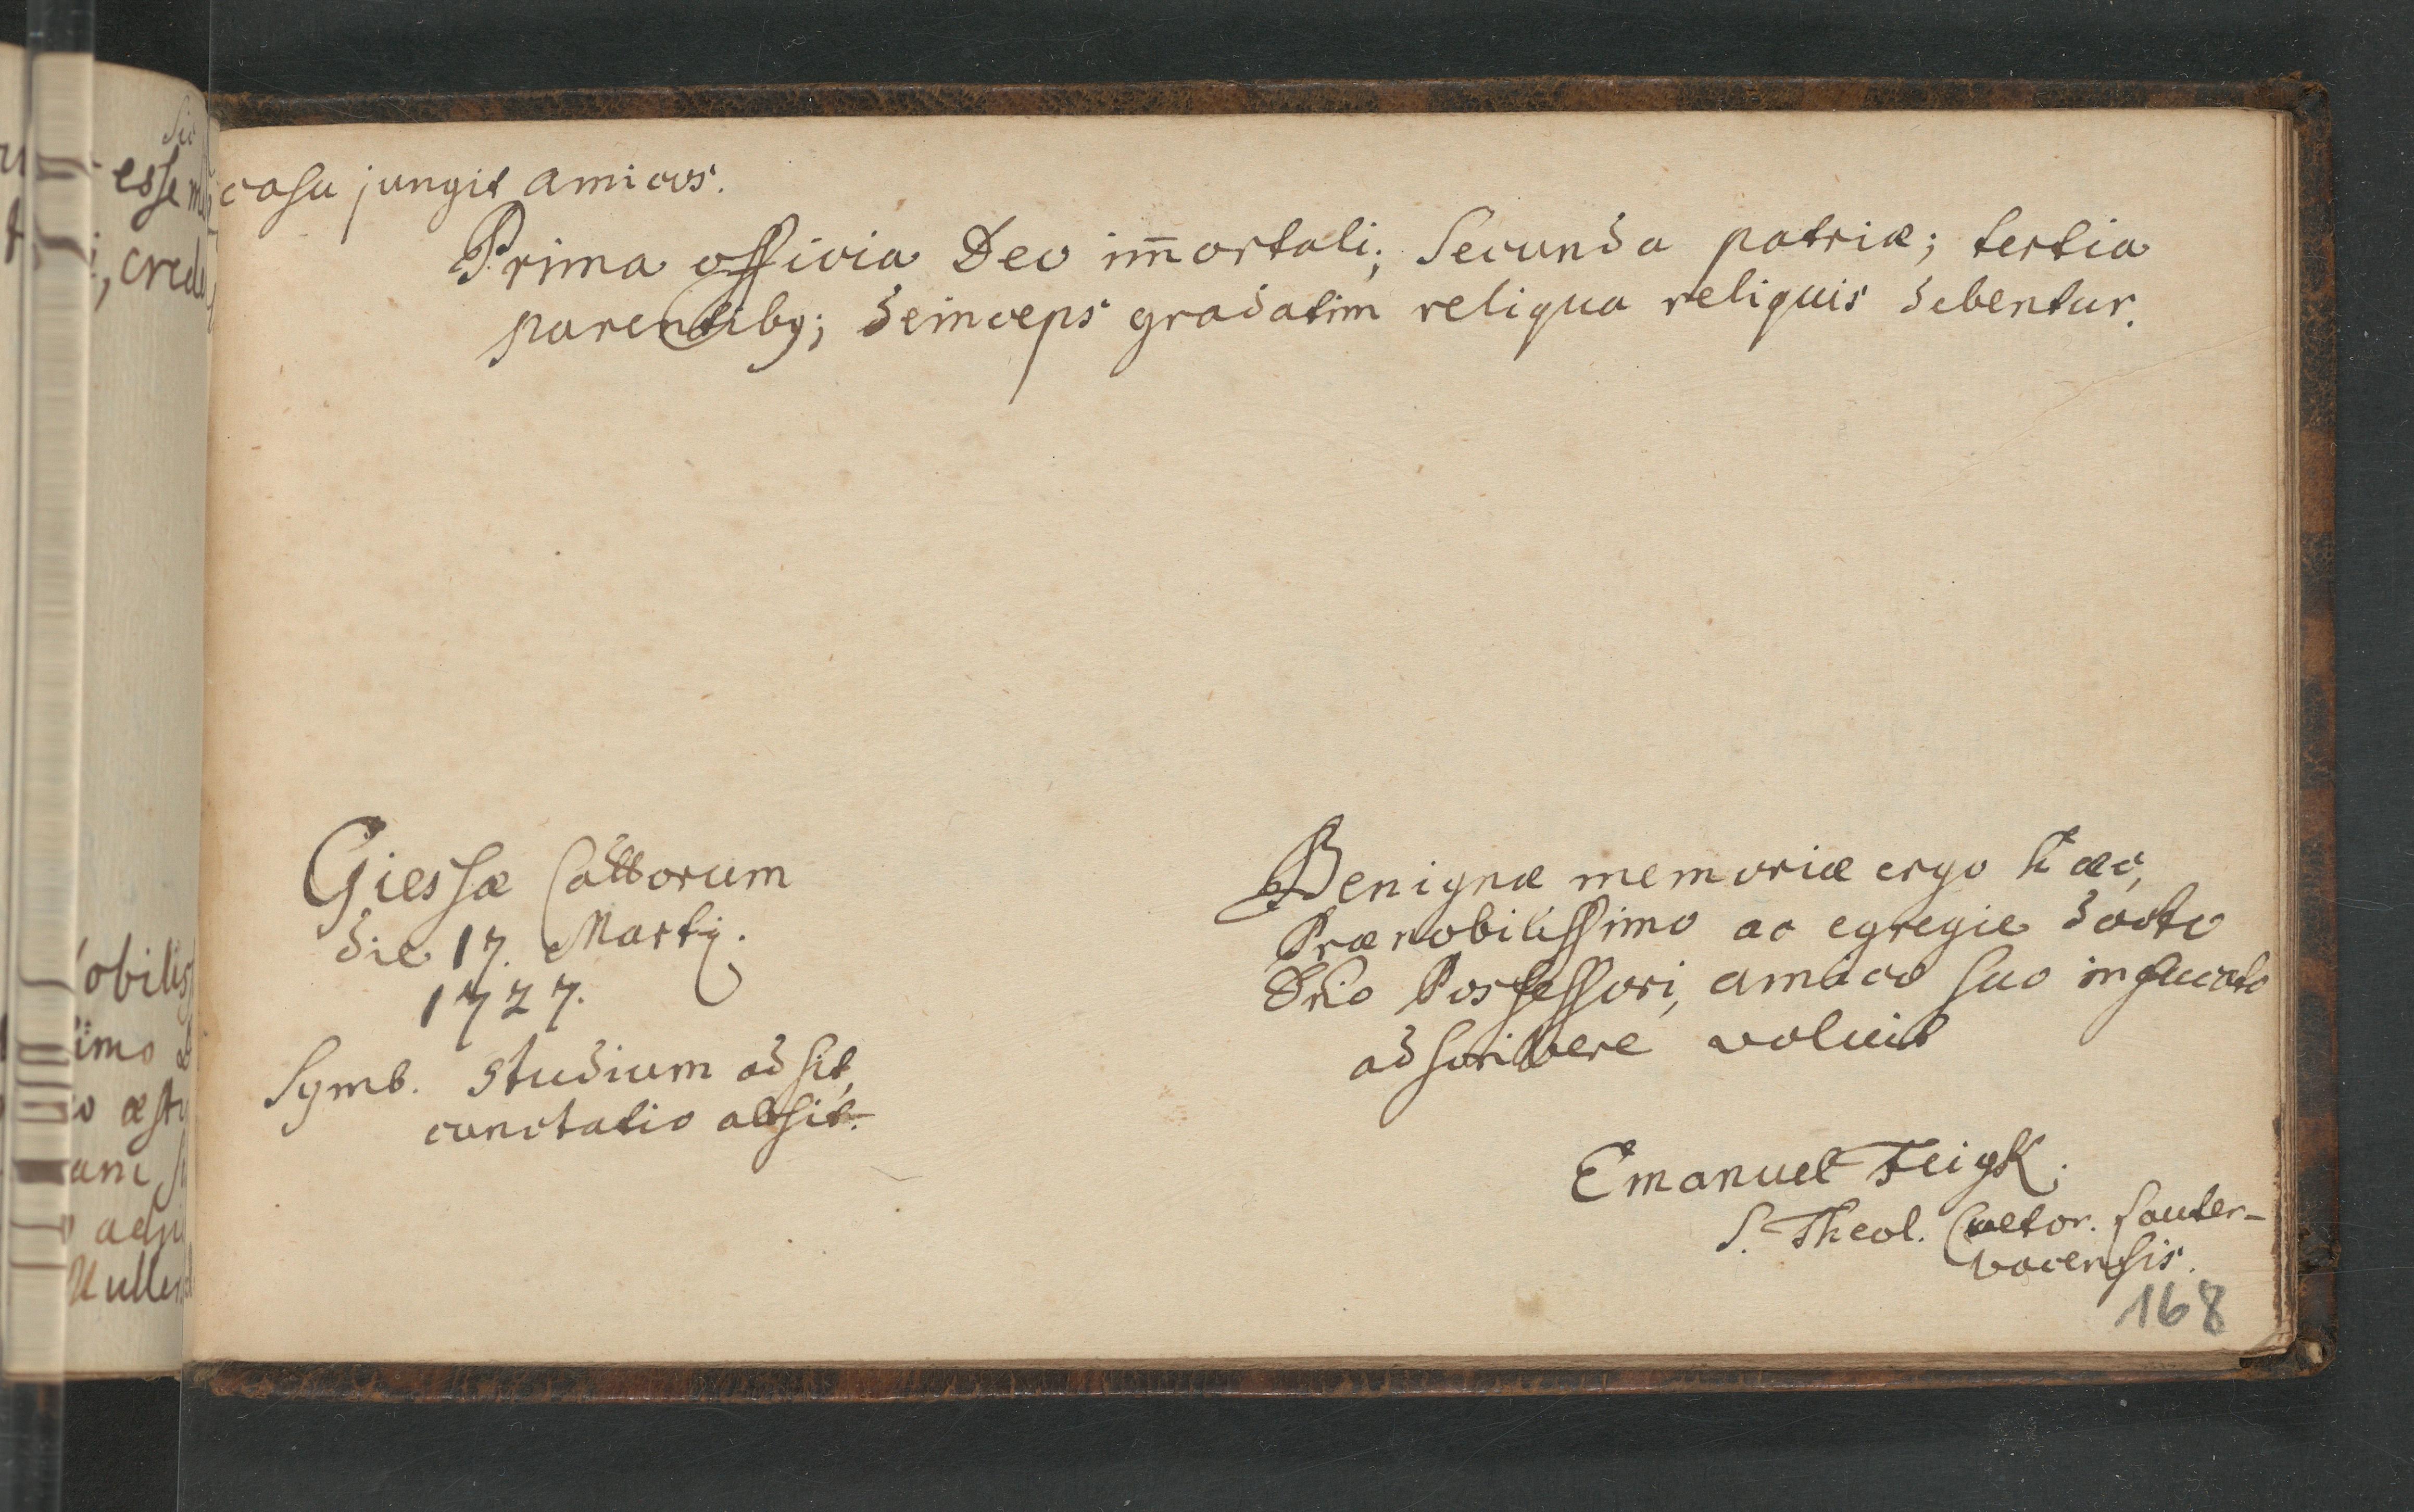 casu jungit amicos.
Prima officia Deo im̄ortali; Secunda patriæ; tertia
parentibꝫ; deinceps gradatim reliqua reliquis debentur.
Giessæ Cattorum
die 17. Martij.
1727.
Symb. Studium adsit,
cunctatio absit.
Benignæ memoriæ ergo hæc,
Prænobilissimo ac egregie docto
Dño Possessori, amico suo infucato
adscribere voluit
Emanuel Feigk.
S. Theol. Cultor. Lauter-
bacensis.
168
esse
, cred
obilis
imo
æst
Muller